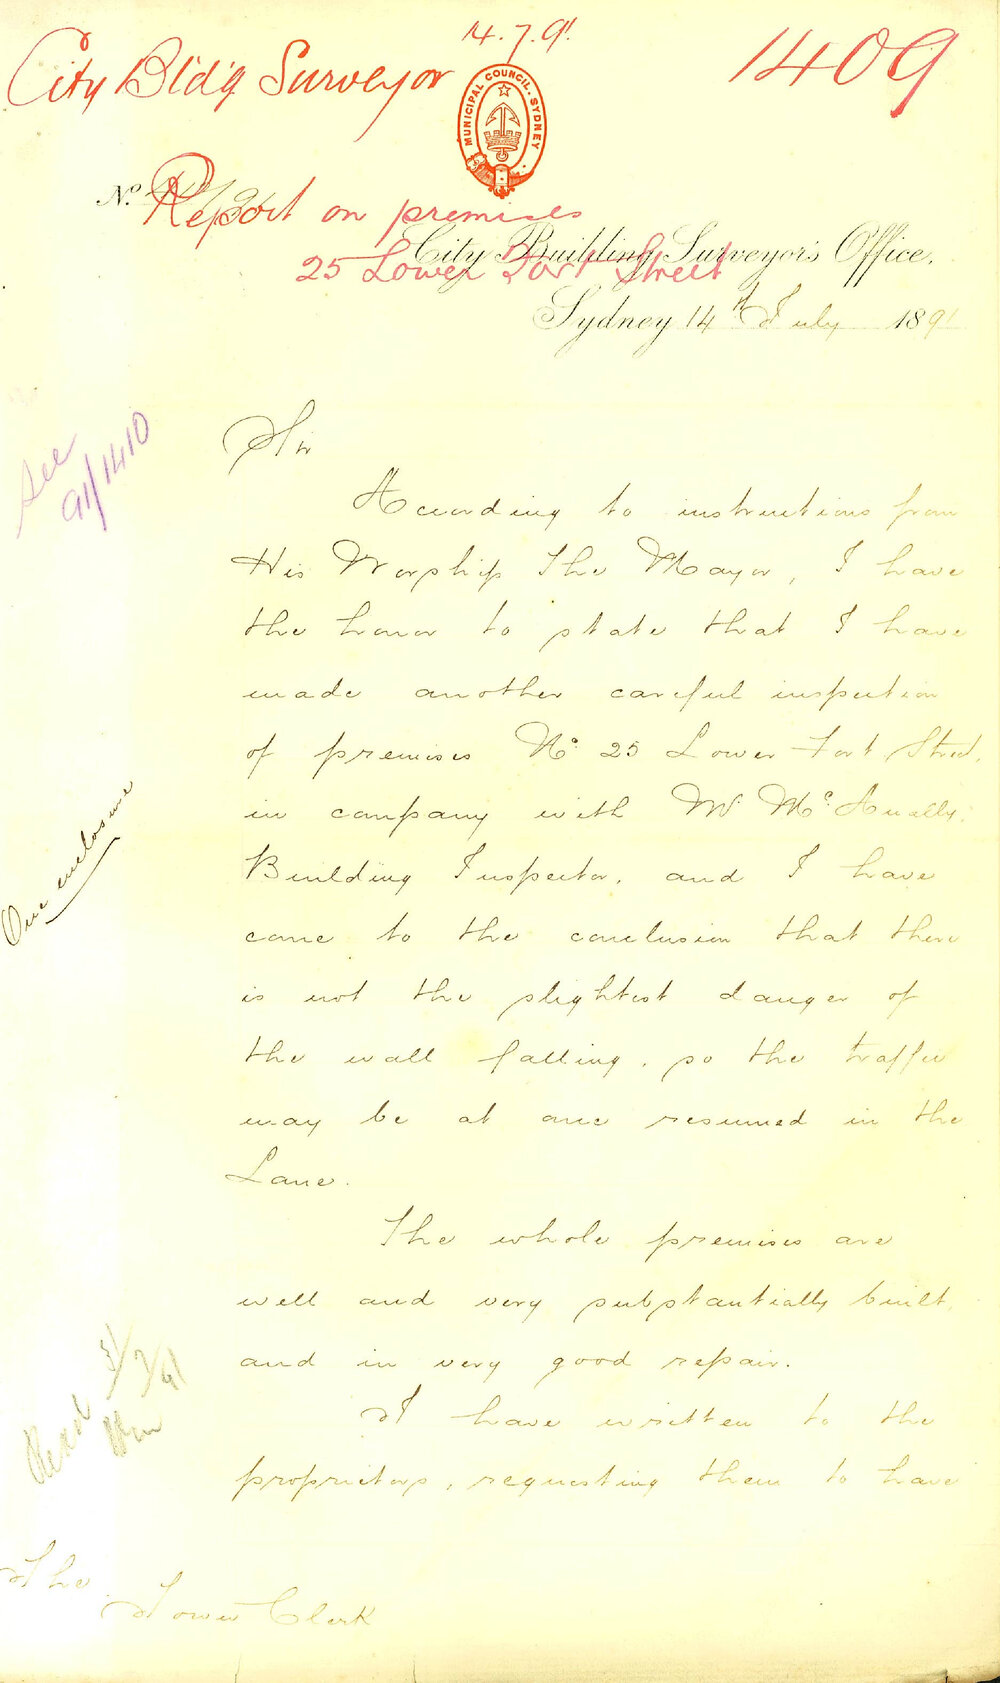 14.7.91
City Bld'g Surveyor
1409
MUNICIPAL COUNCIL. SYDNEY
No.
Report on premises
City Building Surveyor's Office,
25 Lower Fort Street
Sydney 14th July 1891
See
91/1410
Sir
According to instructions from
His Worship The Mayor, I have
the honor to state that I have
made another careful inspection
of premises No. 25 Lower Fort Street,
in company with Mr. McAnally,
Building Inspector, and I have
come to the conclusion that there
is not the slightest danger of
the wall falling, so the traffic
may be at once resumed in the
Lane.
One enclosure
The whole premises are
well and very substantially built,
and in very good repair.
I have written to the
proprietors, requesting them to have
Read
The
Town Clerk